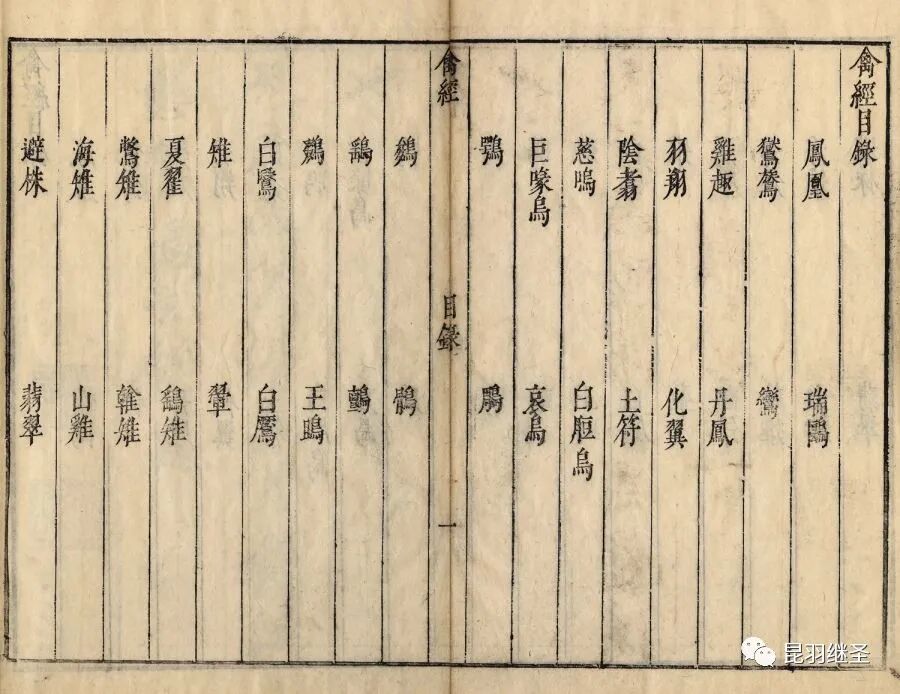 禽經目錄
鳳凰 瑞鶠
鸑鷟 鸞
雞趣 丹鳳
羽翔 化翼
陰翥 土符
慈嗚 白脰烏
巨喙烏 哀烏
鶚 鵰
禽經 目錄 一
鶻
鸇
王鴡
白 白鷹
雉 翬
夏翟 鷂雉
鷩雉 雉
海雉 山雞
避株 翡翠
昆羽继圣